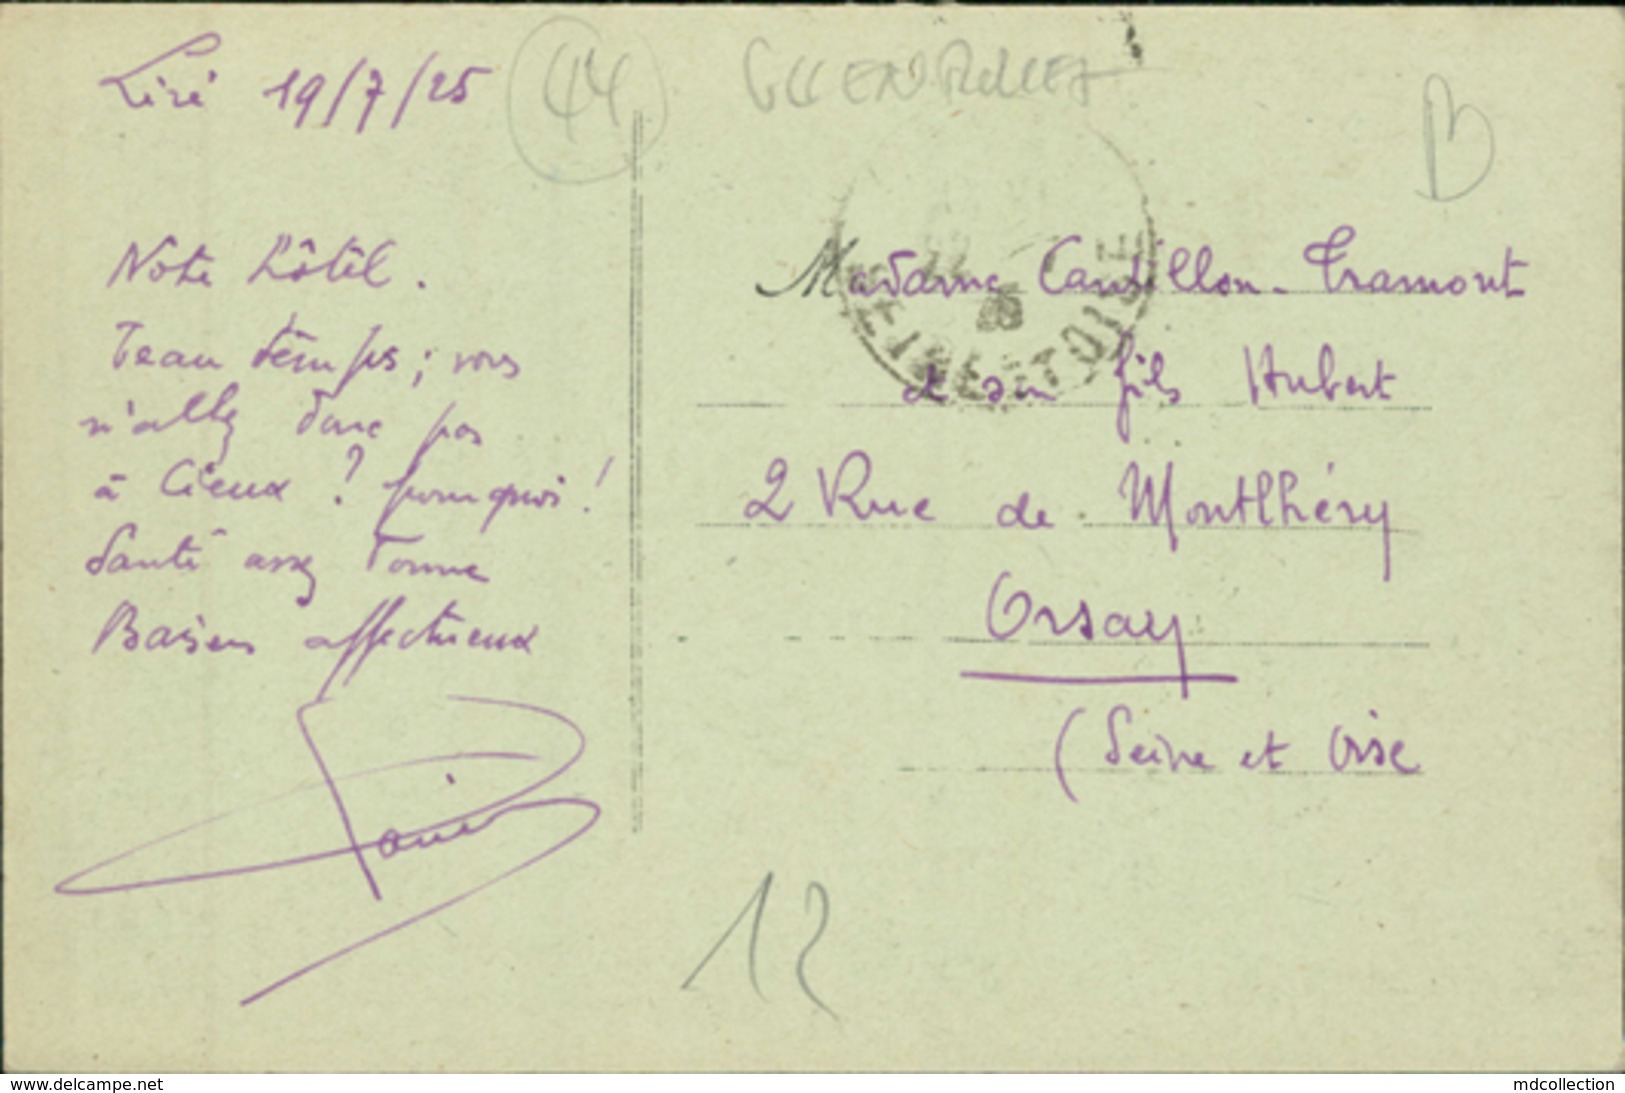 Liré 19/7/25
44
GUENROUET
B
Notre hôtel.
Beau temps ; vous
n'allez donc pas
à Cieux ? pourquoi !
Santé assez bonne
Baisers affectueux
Madame Cantillon-Tramont
et son fils Hubert
2 Rue de Montlhéry
Orsay
(Seine et Oise
SEINE-ET-OISE
12
www.delcampe.net
mdcollection